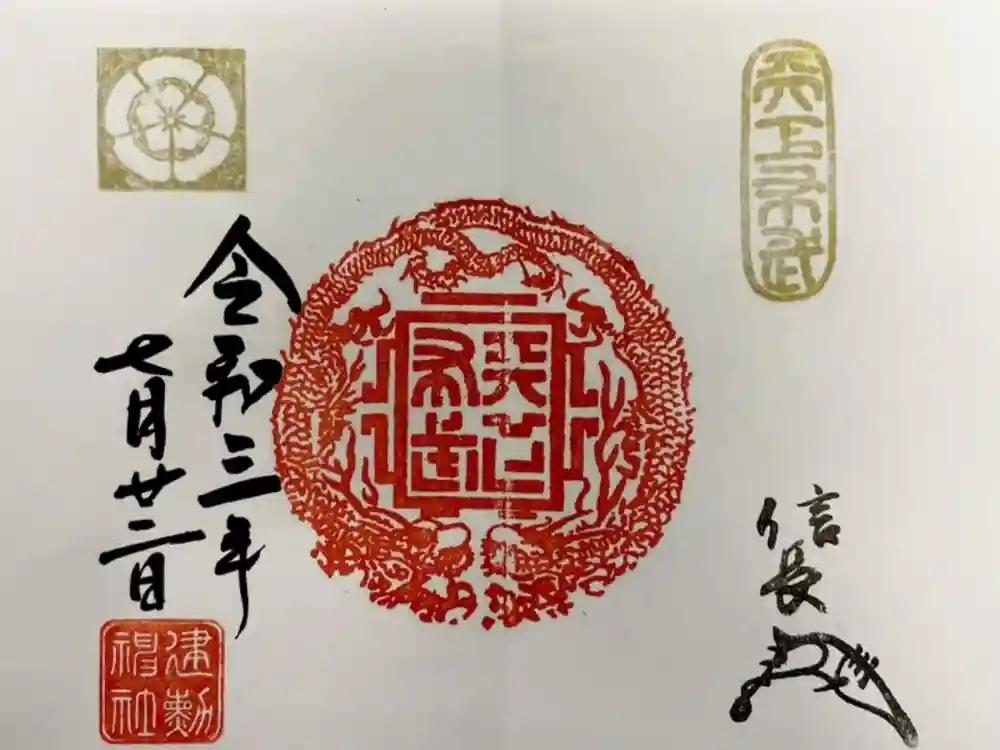 天下布武
信長
天下
布武
令和三年
七月廿二日
建勲
神社